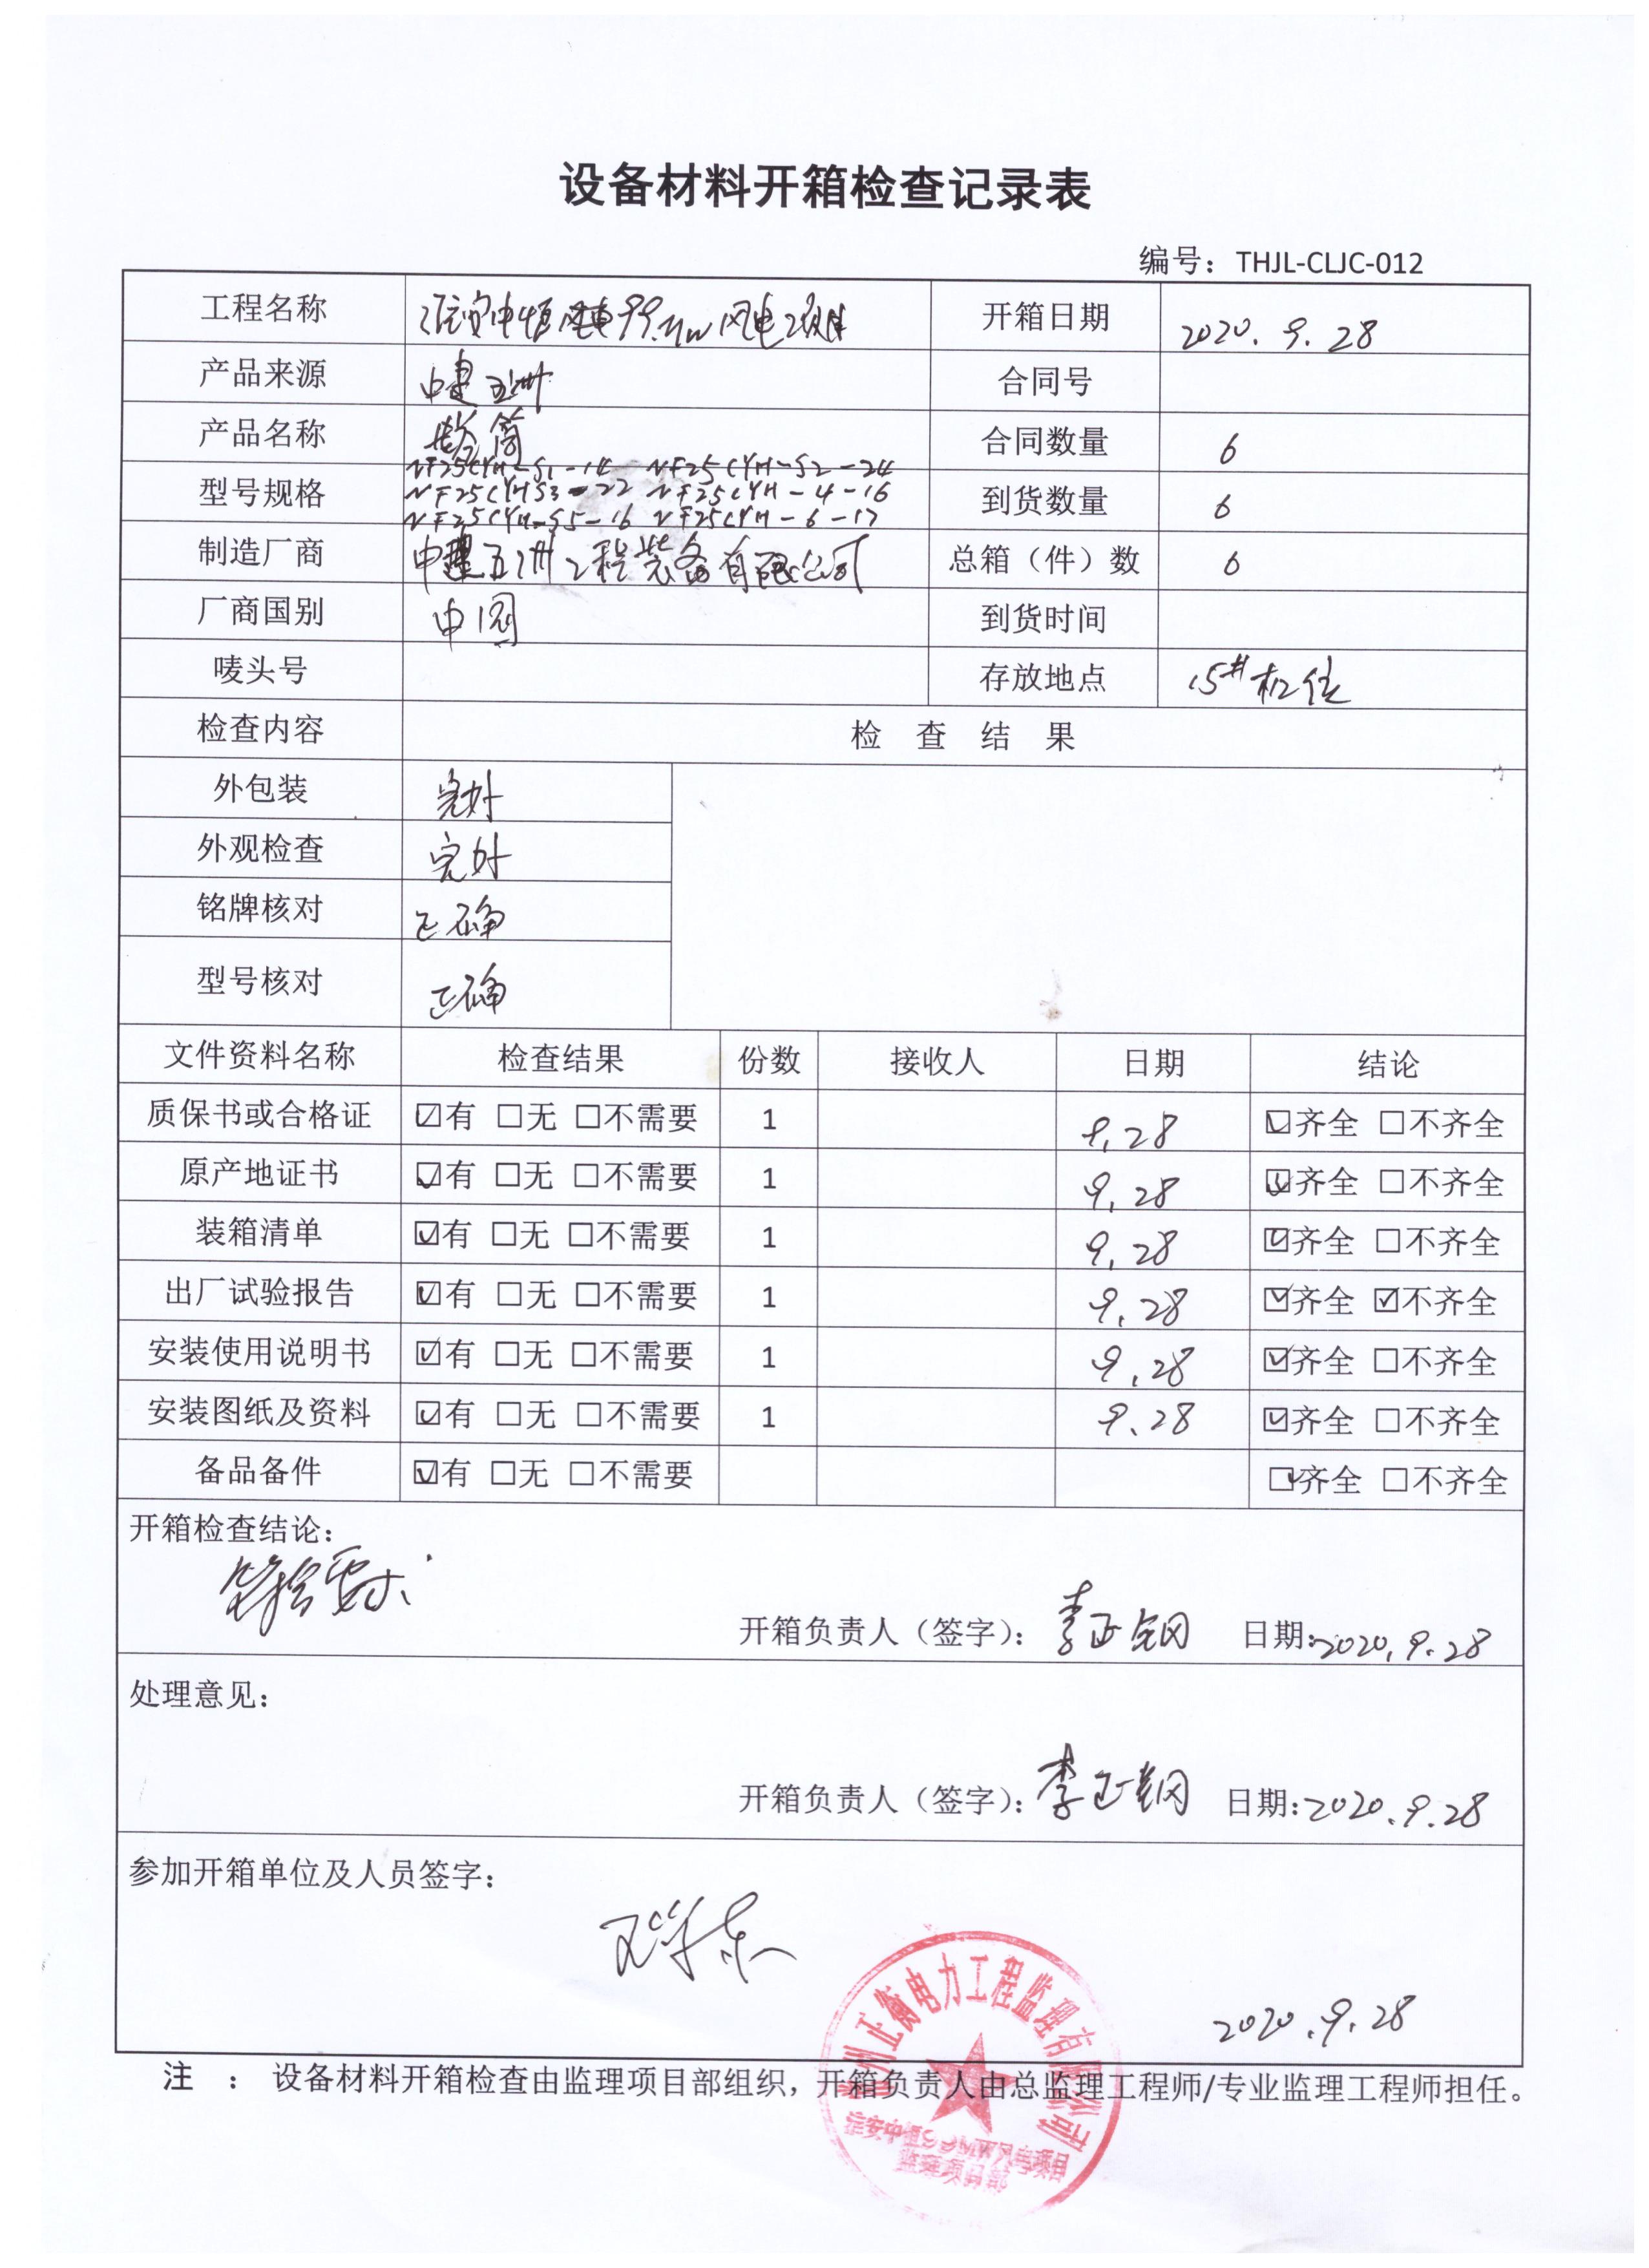 设备材料开箱检查记录表
编号：THJL-CLJC-012
工程名称 淮安中恒 99.MW风电项目 开箱日期 2020.9.28
产品来源 中建五洲 合同号
产品名称 塔筒 合同数量 6
型号规格 NF25CYH-S1-14 NF25CYH-S2-24
NF25CYHS3-22 NF25CYH-4-16 到货数量 6
NF25CYH-S5-16 NF25CYH-6-17
制造厂商 中建五洲工程装备有限公司 总箱（件）数 6
厂商国别 中国 到货时间
唛头号 存放地点 15#机位
检查内容 检 查 结 果
外包装 完好
外观检查 完好
铭牌核对 正确
型号核对 正确
文件资料名称 检查结果 份数 接收人 日期 结论
质保书或合格证 ☑有 □无 □不需要 1 9.28 ☑齐全 □不齐全
原产地证书 ☑有 □无 □不需要 1 9.28 ☑齐全 □不齐全
装箱清单 ☑有 □无 □不需要 1 9.28 ☑齐全 □不齐全
出厂试验报告 ☑有 □无 □不需要 1 9.28 ☑齐全 ☑不齐全
安装使用说明书 ☑有 □无 □不需要 1 9.28 ☑齐全 □不齐全
安装图纸及资料 ☑有 □无 □不需要 1 9.28 ☑齐全 □不齐全
备品备件 ☑有 □无 □不需要 ☑齐全 □不齐全
开箱检查结论：
符合要求.
开箱负责人（签字）：李正钢 日期:2020.9.28
处理意见：
开箱负责人（签字）：李正钢 日期:2020.9.28
参加开箱单位及人员签字：
2020.9.28
注 ： 设备材料开箱检查由监理项目部组织，开箱负责人由总监理工程师/专业监理工程师担任。
州正衡电力工程监理有限公司
淮安中恒99MW风电项目
监理项目部